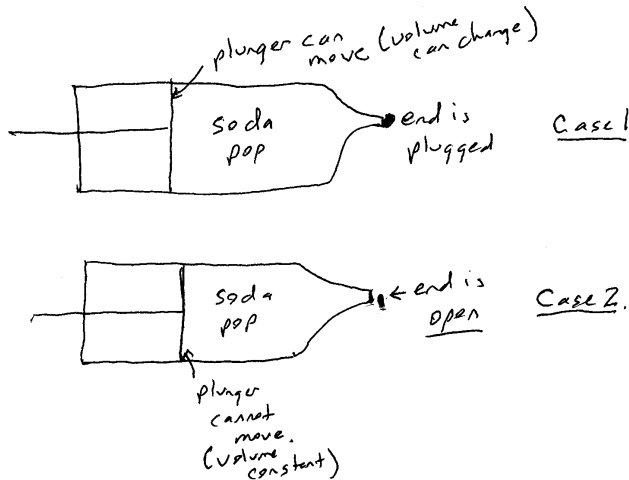 plunger can
move (volume
can change)
soda
pop
end is
plugged
Case 1
soda
pop
← end is
open
Case 2.
plunger
cannot
move.
(volume
constant)